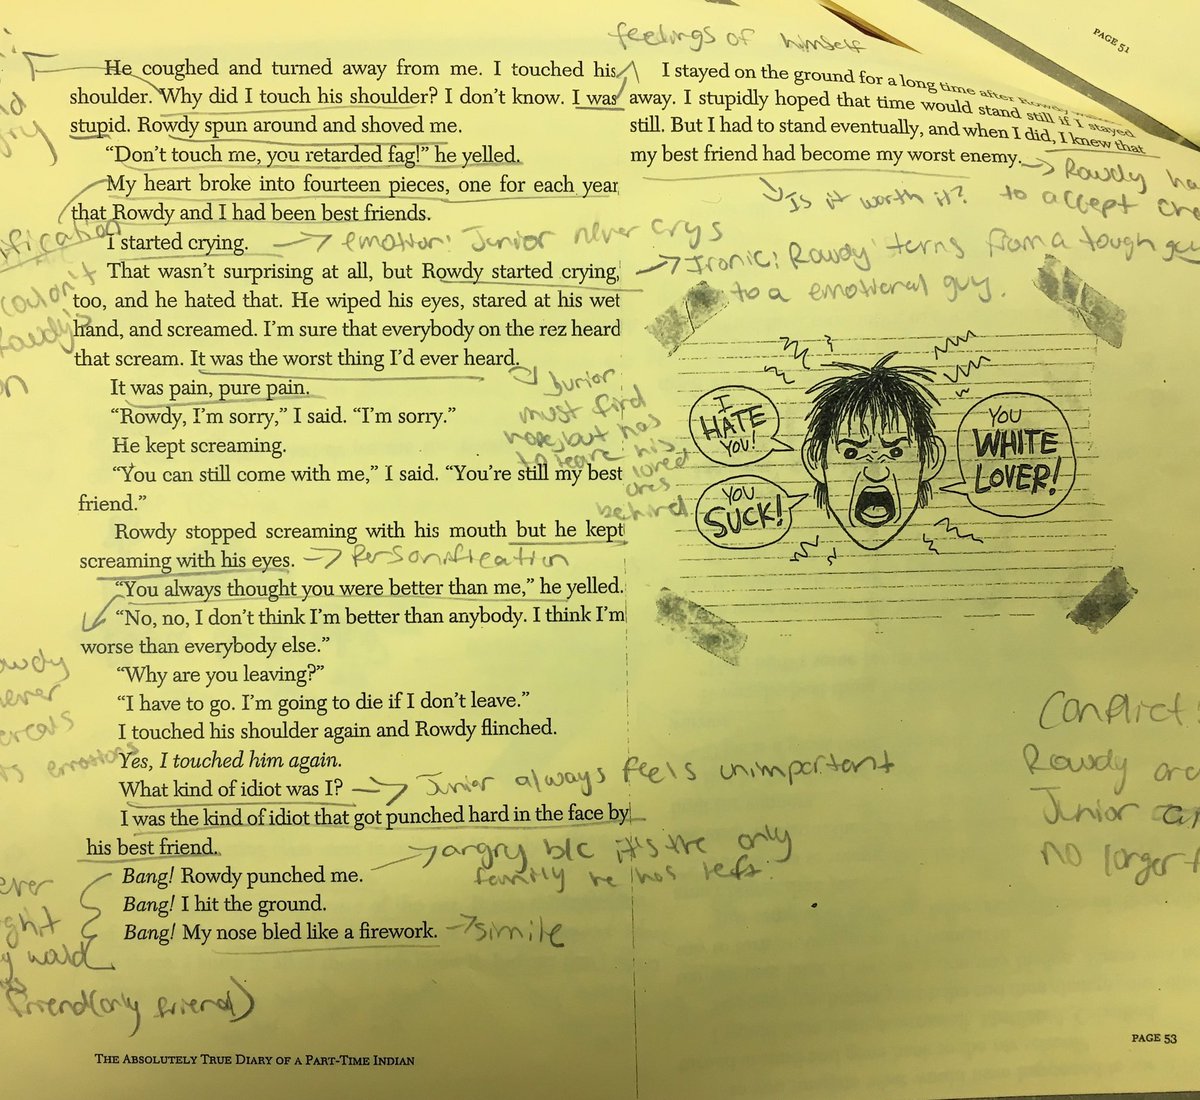 feelings of himself
PAGE 51
He coughed and turned away from me. I touched his
shoulder. Why did I touch his shoulder? I don't know. I was
stupid. Rowdy spun around and shoved me.
"Don't touch me, you retarded fag!" he yelled.
My heart broke into fourteen pieces, one for each year
that Rowdy and I had been best friends.
I started crying.
→ emotion: Junior never crys
That wasn't surprising at all, but Rowdy started crying,
too, and he hated that. He wiped his eyes, stared at his wet
hand, and screamed. I'm sure that everybody on the rez heard
that scream. It was the worst thing I'd ever heard.
It was pain, pure pain.
"Rowdy, I'm sorry," I said. "I'm sorry."
He kept screaming.
"You can still come with me," I said. "You're still my best
friend."
Junior
must find
hope, but has
to leave his
loved
ones
behind
Rowdy stopped screaming with his mouth but he kept
screaming with his eyes.
→ Personification
"You always thought you were better than me," he yelled.
"No, no, I don't think I'm better than anybody. I think I'm
worse than everybody else."
"Why are you leaving?"
"I have to go. I'm going to die if I don't leave."
I touched his shoulder again and Rowdy flinched.
Yes, I touched him again.
What kind of idiot was I?
→ Junior always feels unimportant
I was the kind of idiot that got punched hard in the face by
his best friend.
→ angry b/c it's the only
family he has left.
Bang! Rowdy punched me.
Bang! I hit the ground.
Bang! My nose bled like a firework.
→ simile
friend (only friend)
THE ABSOLUTELY TRUE DIARY OF A PART-TIME INDIAN
I stayed on the ground for a long time after
away. I stupidly hoped that time would stand still if I stayed
still. But I had to stand eventually, and when I did, I knew that
my best friend had become my worst enemy.
→ Rowdy
to accept
Is it worth it?
→ Ironic: Rowdy terns from a tough guy
to a emotional guy.
I
HATE
YOU!
YOU
SUCK!
YOU
WHITE
LOVER!
Conflict:
Rowdy
Junior
no longer
PAGE 53